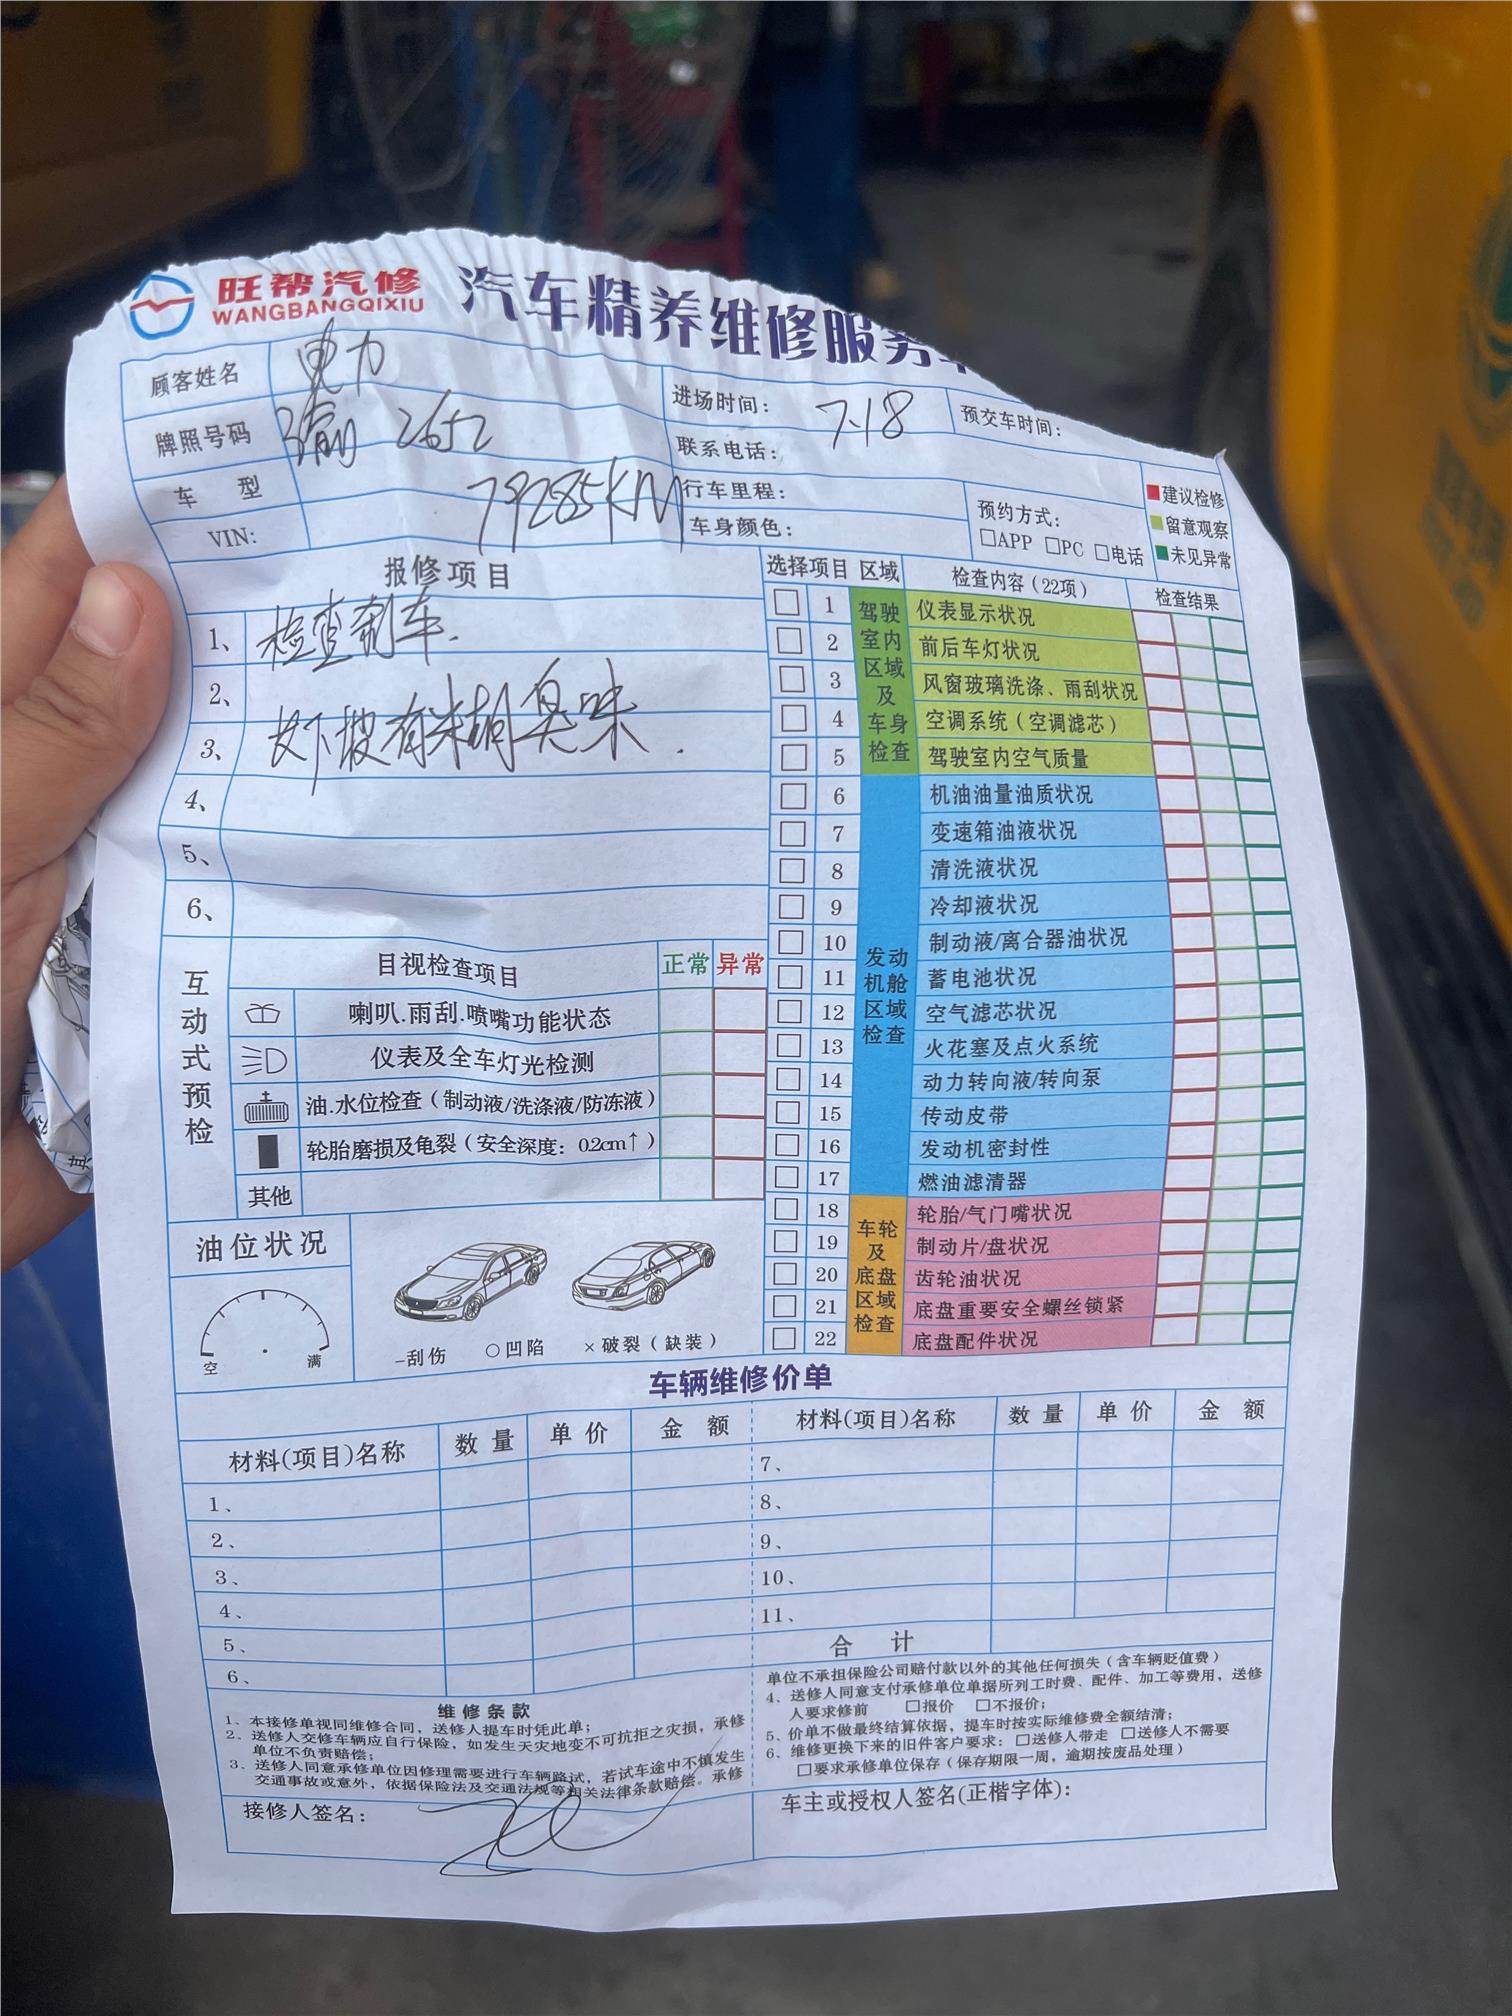 旺帮汽修
WANGBANGQIXIU
汽车精养维修服务
顾客姓名 电力
进场时间: 7-18
预交车时间:
牌照号码 渝 2652
联系电话:
车 型
79285KM
行车里程:
VIN:
车身颜色:
预约方式:
□APP □PC □电话
建议检修
留意观察
未见异常
报修项目
1、检查刹车.
2、
3、长下坡有糊臭味.
4、
5、
6、
选择项目 区域 检查内容(22项) 检查结果
驾驶室内区域及车身检查
1 仪表显示状况
2 前后车灯状况
3 风窗玻璃洗涤、雨刮状况
4 空调系统(空调滤芯)
5 驾驶室内空气质量
发动机舱区域检查
6 机油油量油质状况
7 变速箱油液状况
8 清洗液状况
9 冷却液状况
10 制动液/离合器油状况
11 蓄电池状况
12 空气滤芯状况
13 火花塞及点火系统
14 动力转向液/转向泵
15 传动皮带
16 发动机密封性
17 燃油滤清器
车轮及底盘区域检查
18 轮胎/气门嘴状况
19 制动片/盘状况
20 齿轮油状况
21 底盘重要安全螺丝锁紧
22 底盘配件状况
互动式预检
目视检查项目 正常 异常
喇叭.雨刮.喷嘴功能状态
仪表及全车灯光检测
油.水位检查(制动液/洗涤液/防冻液)
轮胎磨损及龟裂(安全深度: 0.2cm↑)
其他
油位状况
空 满
-刮伤 ○凹陷 ×破裂(缺装)
车辆维修价单
材料(项目)名称 数量 单价 金额 材料(项目)名称 数量 单价 金额
1、
2、
3、
4、
5、
6、
7、
8、
9、
10、
11、
合 计
维修条款
1、本接修单视同维修合同，送修人提车时凭此单;
2、送修人交修车辆应自行保险，如发生天灾地变不可抗拒之灾损，承修
单位不负责赔偿;
3、送修人同意承修单位因修理需要进行车辆路试，若试车途中不慎发生
交通事故或意外，依据保险法及交通法规等相关法律条款赔偿。承修
单位不承担保险公司赔付款以外的其他任何损失(含车辆贬值费)
4、送修人同意支付承修单位单据所列工时费、配件、加工等费用，送修
人要求修前 □报价 □不报价;
5、价单不做最终结算依据，提车时按实际维修费全额结清;
6、维修更换下来的旧件客户要求: □送修人带走 □送修人不需要
□要求承修单位保存(保存期限一周，逾期按废品处理)
接修人签名:
车主或授权人签名(正楷字体):